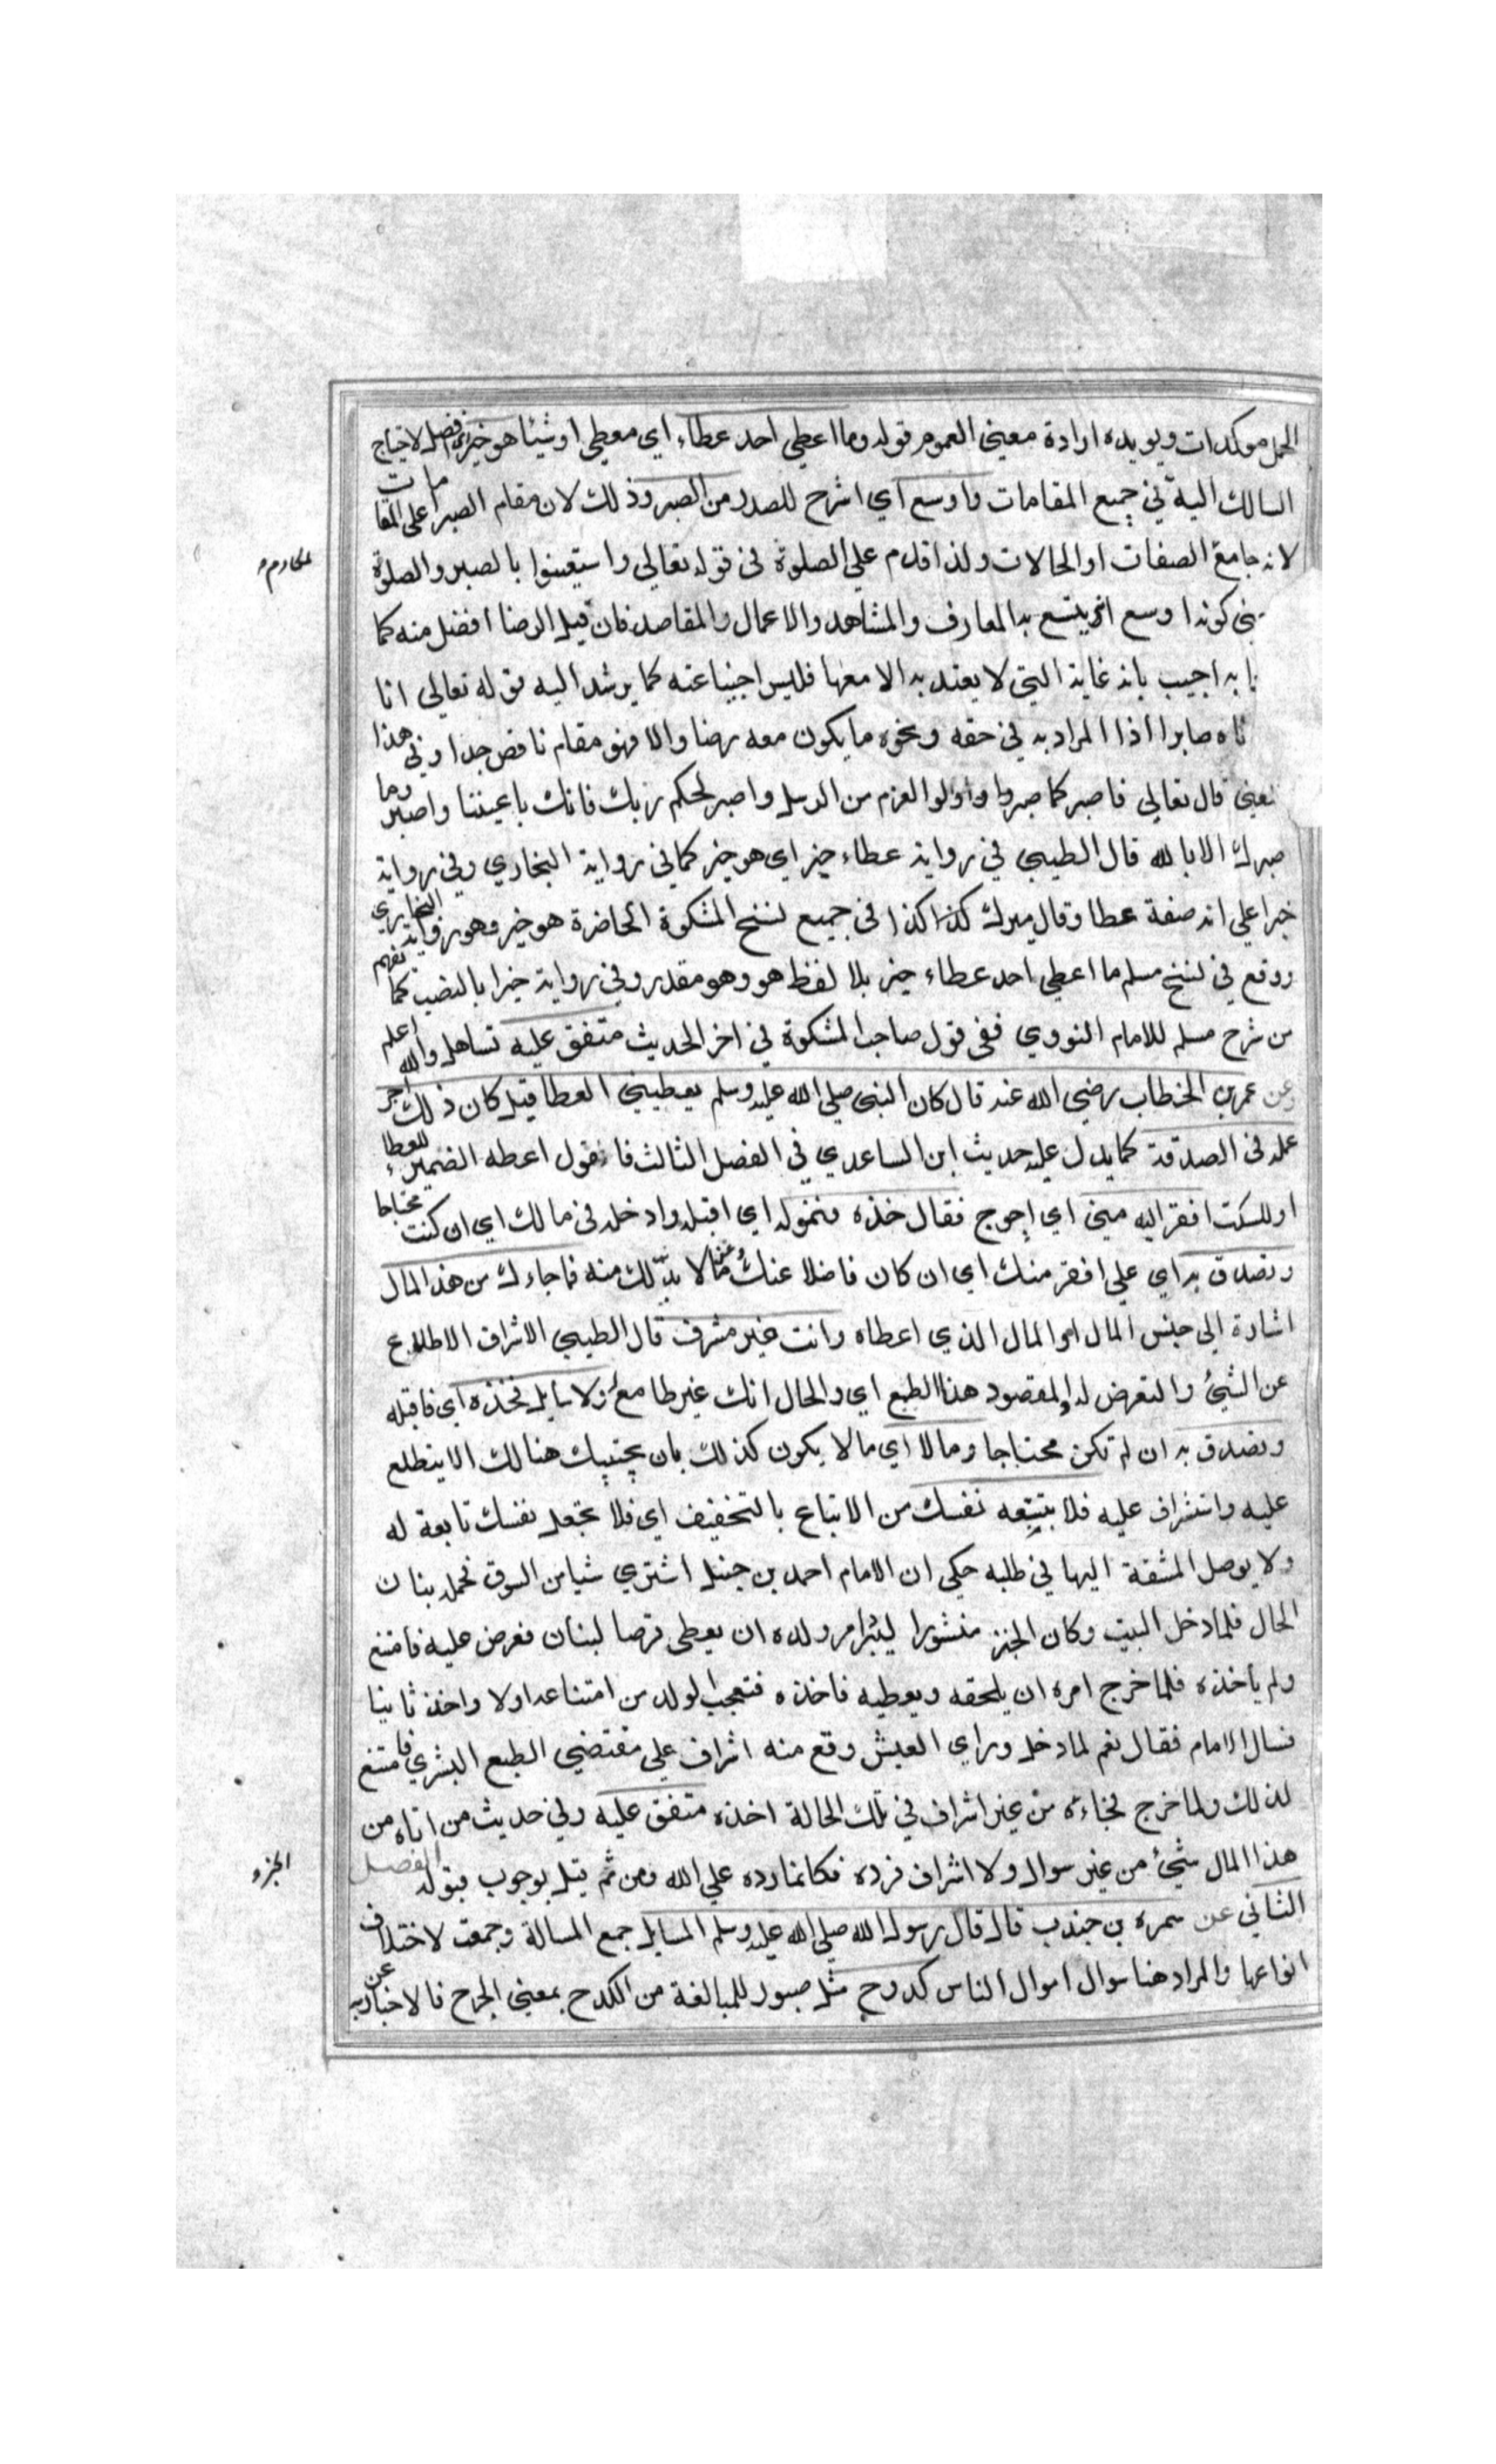 الجمل موكدات ويويده ارادة معنى العموم قوله وما اعطي احد عطاء اي معطي او شيئا هو خير اي افضل لاحتياج
السالك اليه في جميع المقامات واوسع اي اشرح للصدر من الصبر وذلك لان مقام الصبر اعلى المقامات
لانه جامع الصفات او الحالات ولذا قدم على الصلوة في قوله تعالى واستعينوا بالصبر والصلوة
كونه اوسع انه يتسع به المعارف والمشاهد والاعمال والمقاصد فان قيل الرضا افضل منه كما
به اجيب بانه غايته التي لا يعتد به الا معها فليس اجنبيا عنه كما يرشد اليه قوله تعالى انا
ناه صابرا اذ المراد به في حقه ونحوه ما يكون معه رضا والا فهو مقام ناقص جدا وفي هذا
قال تعالى فاصبر كما صبروا واولوا العزم من الرسل واصبر لحكم ربك فانك باعيننا واصبر وما
صبرك الا بالله قال الطيبي في رواية عطاء خير اي هو خير كما في رواية البخاري وفي رواية
خيرا على انه صفة عطا وقال ميرك كذا كذا في جميع نسخ المشكوة الحاضرة هو خير وهو رواية البخاري
ووقع في نسخ مسلم ما اعطي احد عطاء خير بلا لفظ هو وهو مقدر وفي رواية خيرا بالنصب كما تفهم
من شرح مسلم للامام النووي ففي قول صاحب المشكوة في اخر الحديث متفق عليه تساهل والله اعلم
وعن عمر بن الخطاب رضي الله عنه قال كان النبي صلى الله عليه وسلم يعطيني العطا قيل كان ذلك اجر
عمله في الصدقة كما يدل عليه حديث ابن الساعدي في الفصل الثالث فاقول اعطه الضمير للعطاء
او للسكت افقر اليه مني اي احوج فقال خذه فتموله اي اقبله وادخله في مالك اي ان كنت محتاجا
وتصدق به اي على افقر منك اي ان كان فاضلا عنك عما لا بد لك منه فما جاءك من هذا المال
اشارة الى جنس المال او المال الذي اعطاه وانت غير مشرف قال الطيبي الاشراف الاطلاع
عن الشيئ والتعرض له والمقصود هنا الطمع اي والحال انك غير طامع ولا سايل فخذه اي فاقبله
وتصدق به ان لم تكن محتاجا وما لا اي ما لا يكون كذلك بان يجيبك هنالك الا بتطلع
عليه واستشراف عليه فلا تتبعه نفسك من الاتباع بالتخفيف اي فلا تجعل نفسك تابعة له
ولا يوصل المشقة اليها في طلبه حكي ان الامام احمد بن حنبل اشترى شيا من السوق فحمله بنان
الحمال فلما دخل البيت وكان الخبز منشورا ليبرد امر ولده ان يعطي قرصا لبنان فعرض عليه فامتنع
ولم يأخذه فلما خرج امره ان يلحقه ويعطيه فاخذه فتعجب الولد من امتناعه اولا واخذه ثانيا
فسال الامام فقال نعم لما دخل وراي العيش وقع منه اشراف على مقتضى الطبع البشري فامتنع
لذلك ولما خرج فجاءه من غير اشراف في تلك الحالة اخذه متفق عليه وفي حديث من اتاه من
هذا المال شيئ من غير سوال ولا اشراف فرده فكانما رده على الله ومن ثم قيل بوجوب قبوله الفصل
الثاني عن سمرة بن جندب قال قال رسول الله صلى الله عليه وسلم المسايل جمع المسالة وجمعت لاختلاف
انواعها والمراد هنا سوال اموال الناس كدوح مثل صبور للمبالغة من الكدح بمعنى الجرح فالاخبار به عن
الجزء